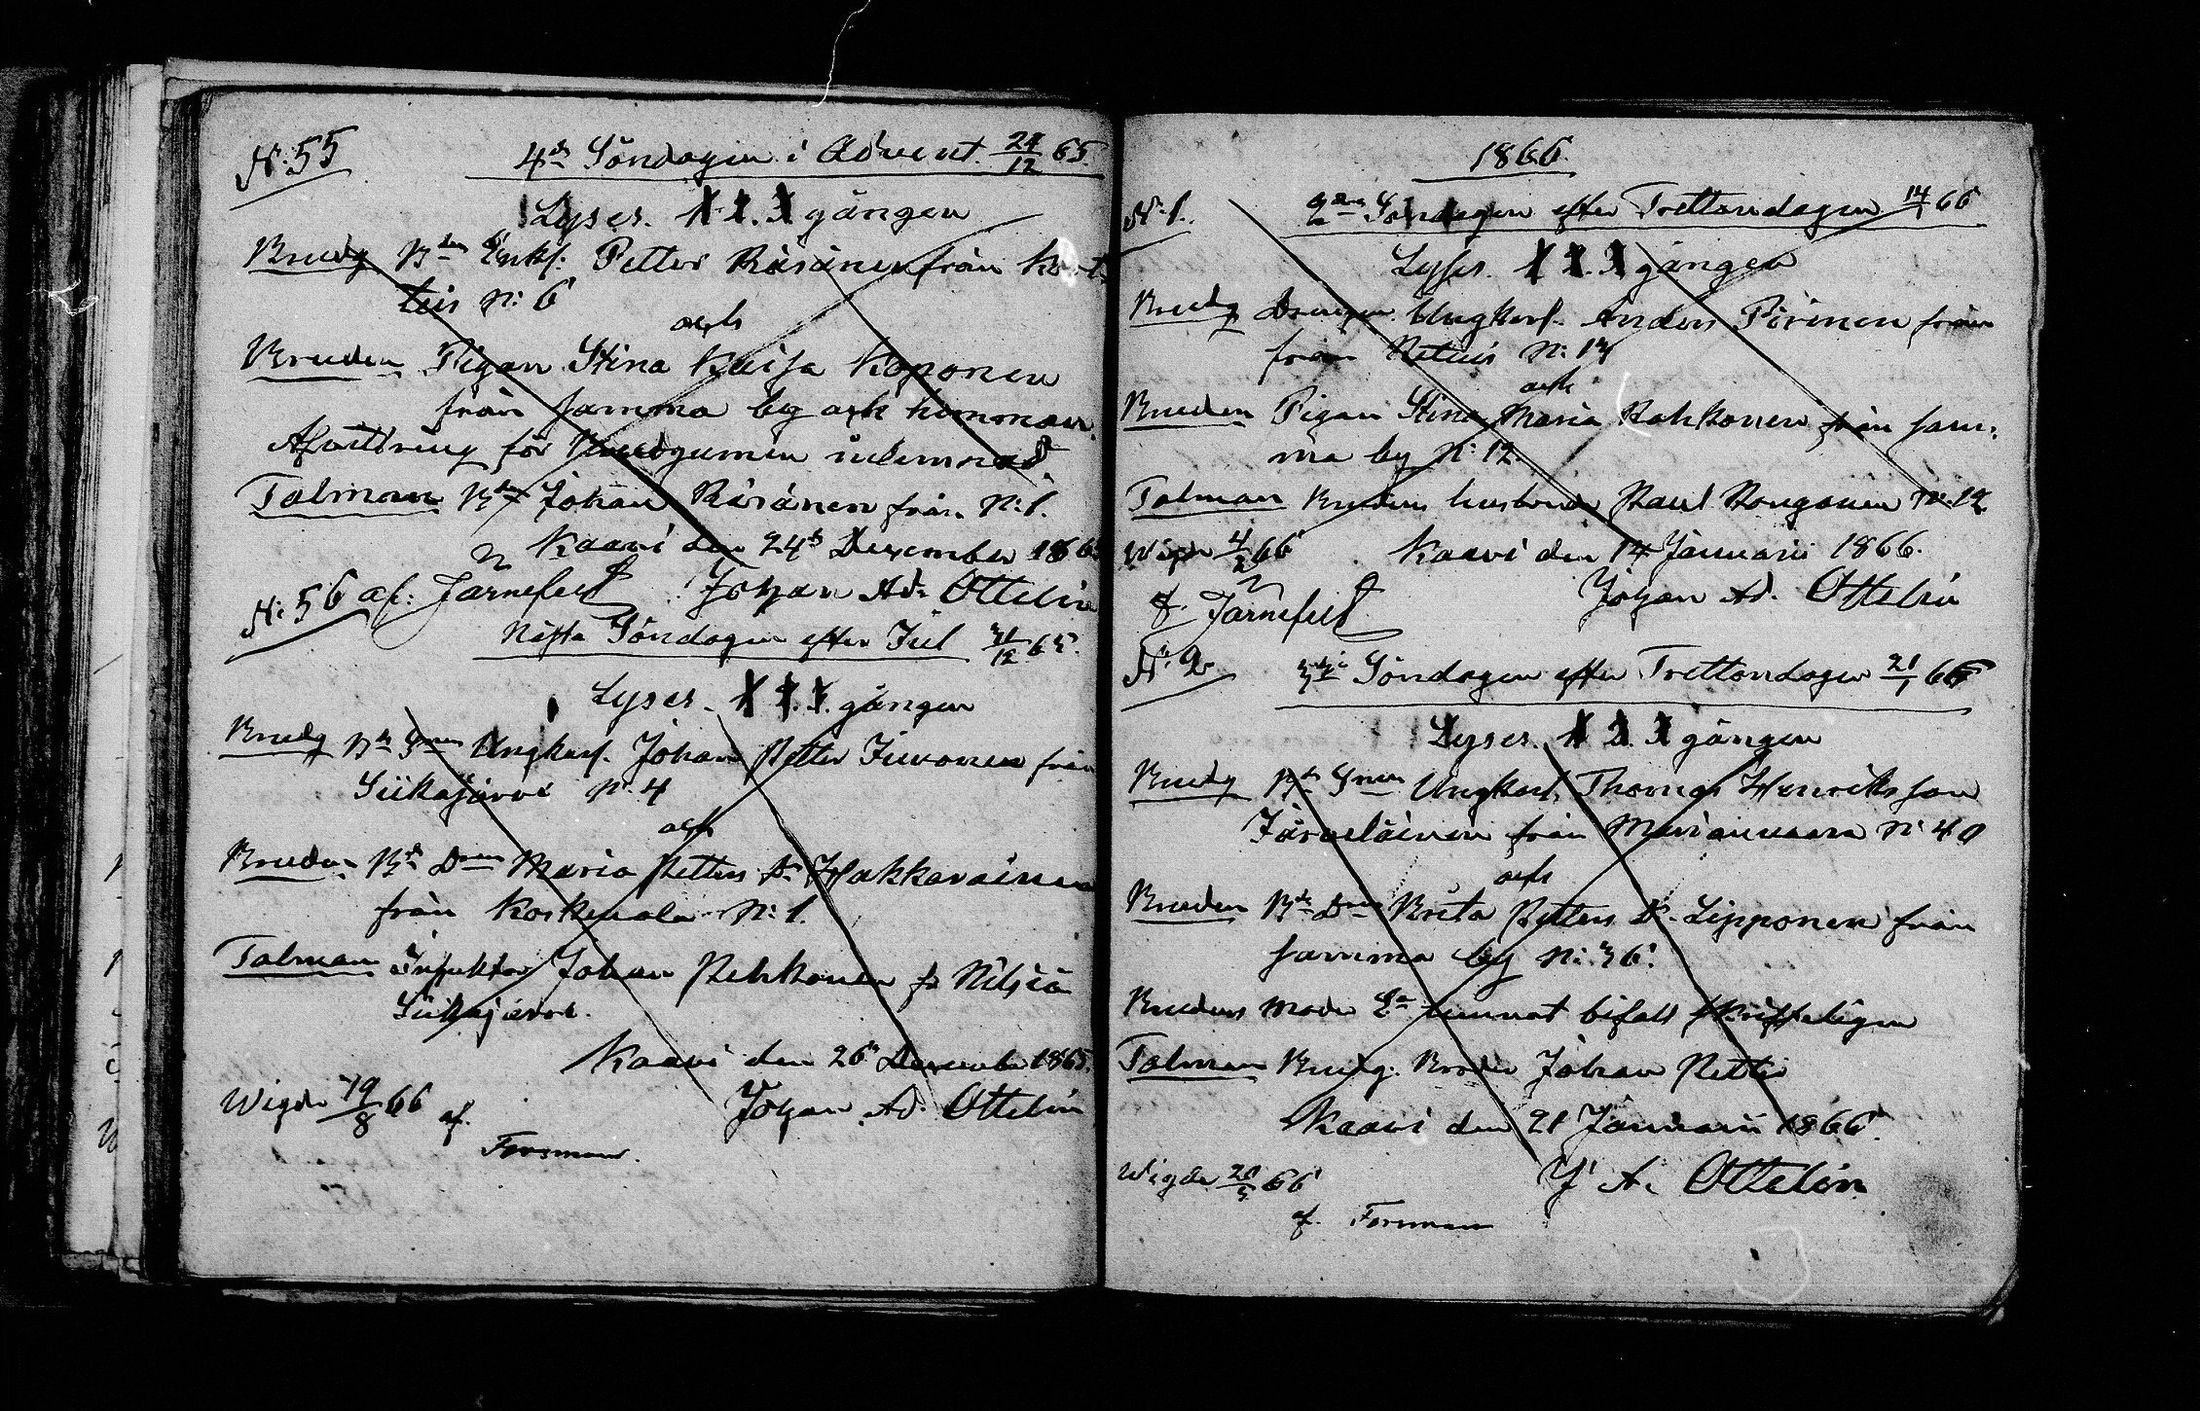 N: 55
4de Söndagen i Advent 24/12 65.
Lyses. 1. 2. 3 gången
Brudg Bden Enkl: Petter Räsänen från
teis N: 6
och
Bruden Pigan Stina Kaisa Koponen
från samma by och hemman.
Afvittring för Brudgumen inlemnad.
Talman Bd Johan Räsänen från N: 1.
Kaavi den 24de December 186
af: Järnefelt Johan Ad. Ottelin
N: 56
Nästa Söndagen efter Jul 31/12 65.
Lyses. 1. 2. 3. gången
Brudg Bde Snen Ungkarl. Johan Petter Juvonen från
Siikajärvi N: 4
och
Bruden Bde Dren Maria Petters Dr Hakkarainen
från Koskenala N: 1.
Talman Inspektor Johan Pehkonen fr Nilsiä
Siikajärvi.
Kaavi den 26 December 1865.
Wigde 19/8 66 af. Johan Ad. Ottelin
Forsman.
1866.
N: 1. 2dra Söndagen efter Trettondagen 14/1 66
Lyses. 1. 2. 3 gången
Brudg Drengen Ungkarl. Anders Pirinen från
från N: 13
och
Bruden Pigan Stina Maria Rahkonen från sam-
ma by N: 12.
Talman Brudens husbonde Paul N: 12
Wigde 4/2 66 Kaavi den 14 Januarii 1866.
af. Järnefelt Johan Ad. Ottelin
N: 2. 3dje Söndagen efter Trettondagen 21/1 66
Lyses. 1. 2. 3 gången
Brudg Bde Snen Ungkarl. Thomas Henriksson
Järveläinen från Marianvaara N: 40
och
Bruden Bde Dren Brita Petters Dr. Lipponen från
samma by N: 36.
Brudens moder lemnat bifall skriftligen
Talman Brudg. Broder Johan Petter
Kaavi den 21 Januarii 1866.
Wigde 20/3 66 J. A. Ottelin
af. Forsman